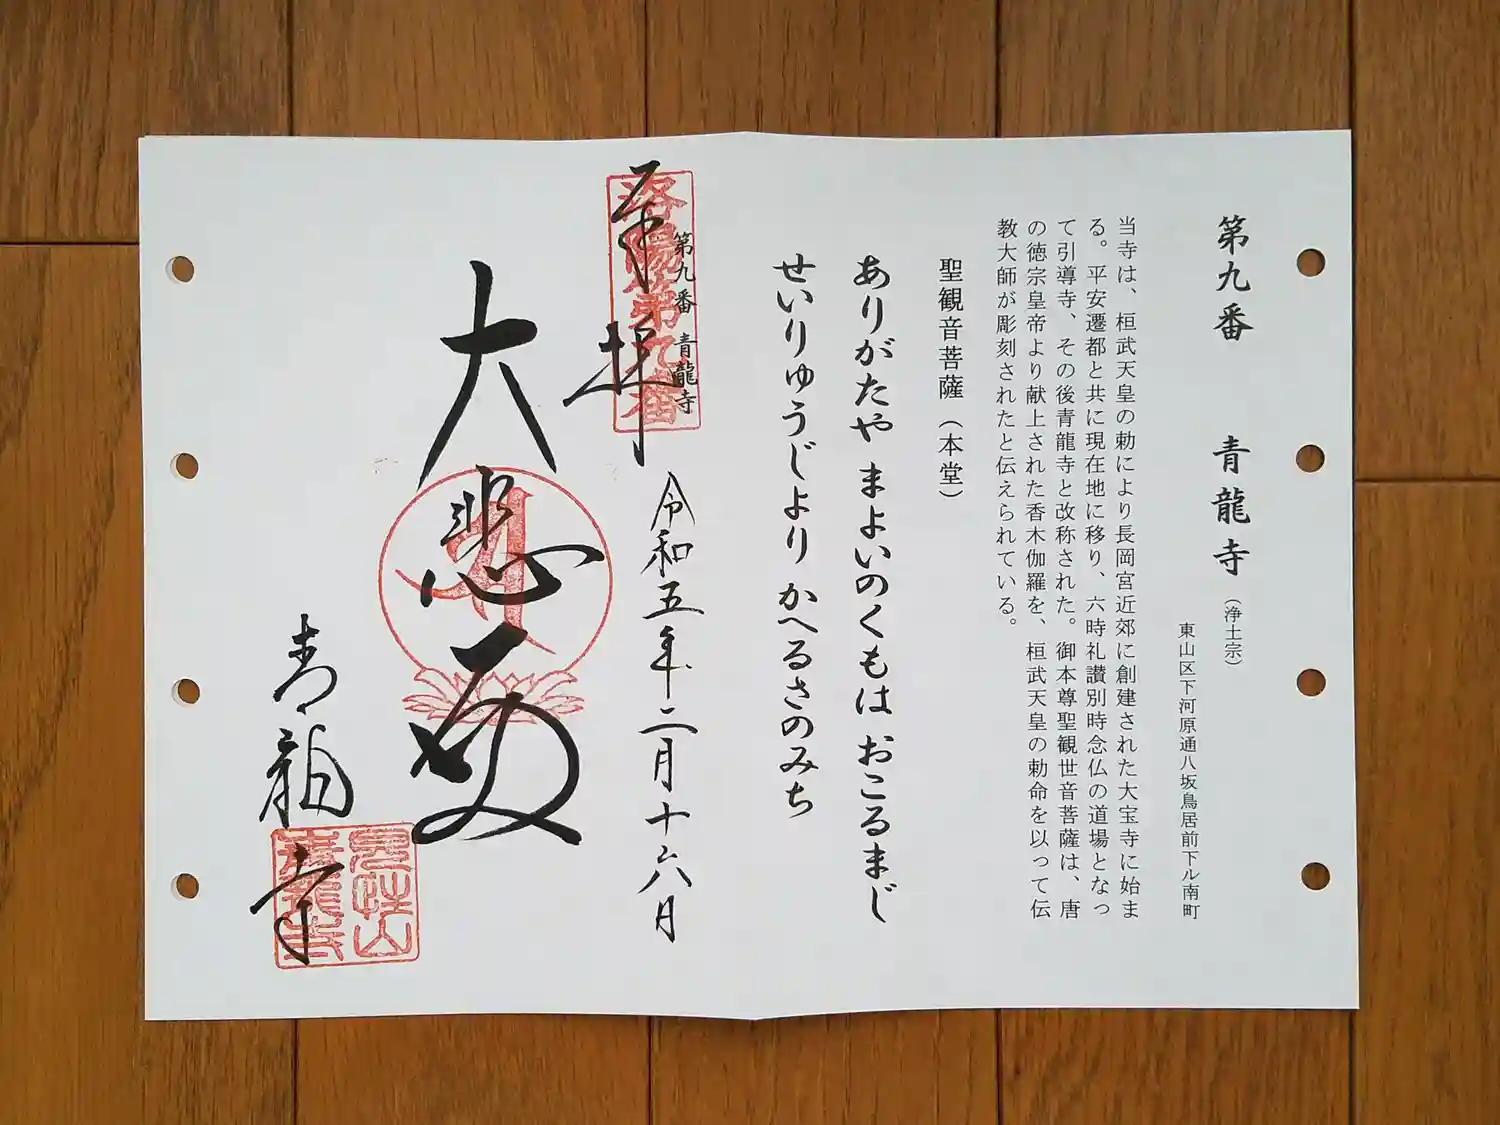 第九番　青龍寺（浄土宗）
東山区下河原通八坂鳥居前下ル南町
当寺は、桓武天皇の勅により長岡宮近郊に創建された大宝寺に始ま
る。平安遷都と共に現在地に移り、六時礼讃別時念仏の道場となっ
て引導寺、その後青龍寺と改称された。御本尊聖観世音菩薩は、唐
の徳宗皇帝より献上された香木伽羅を、桓武天皇の勅命を以って伝
教大師が彫刻されたと伝えられている。
聖観音菩薩（本堂）
ありがたや まよいのくもは おこるまじ
せいりゅうじより かへるさのみち
第九番　青龍寺
洛陽第九番
奉拝
令和五年二月十六月
大悲殿
青龍寺
見性山
青龍寺